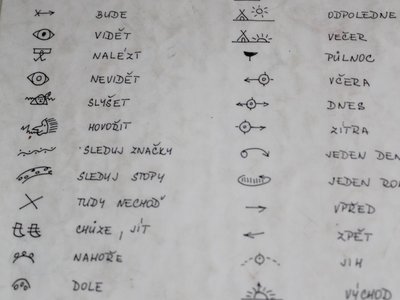 BUDE
VIDĚT
NALÉZT
NEVIDĚT
SLYŠET
HOVOŘIT
SLEDUJ ZNAČKY
SLEDUJ STOPY
TUDY NECHOĎ
CHŮZE, JÍT
NAHOŘE
DOLE
ODPOLEDNE
VEČER
PŮLNOC
VČERA
DNES
ZÍTRA
JEDEN DEN
JEDEN RO
VPŘED
ZPĚT
JIH
VÝCHOD